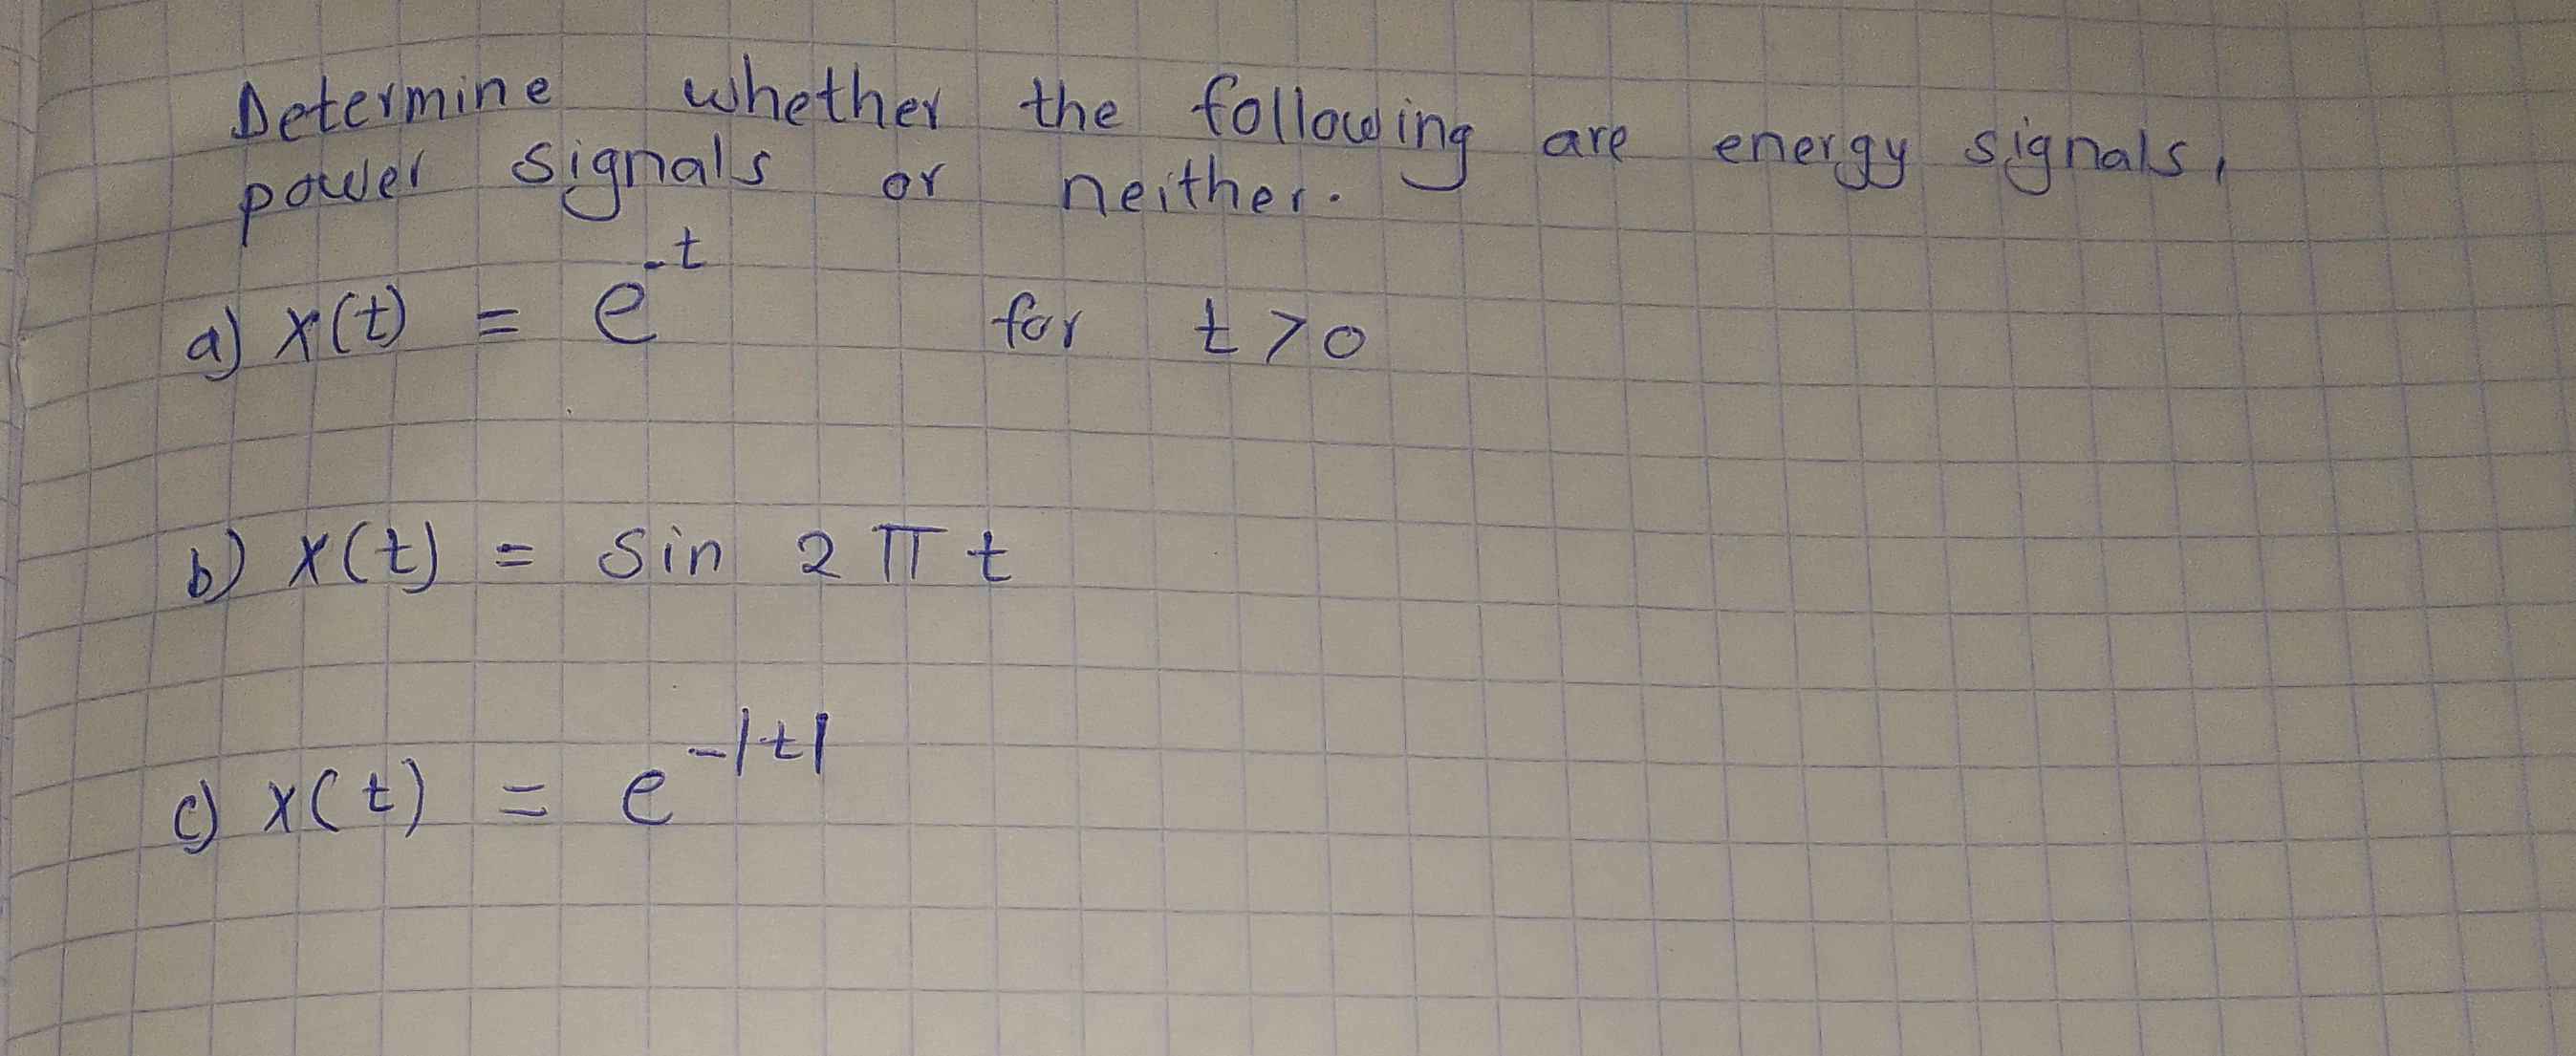 Determine whether the following are energy signals,
power signals or neither.
a) x(t) = e^-t for t > 0
b) x(t) = sin 2 π t
c) x(t) = e^-|t|